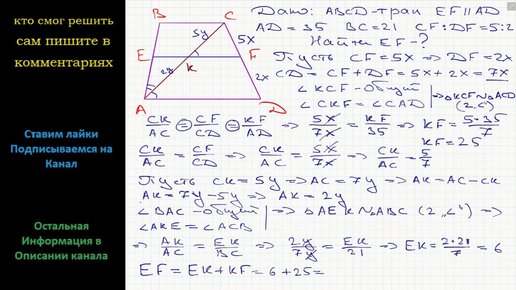 кто смог решить
сам пишите в
комментариях
Ставим лайки
Подписываемся на
Канал
Остальная
Информация в
Описании канала
B C
5y 5x
E F
K
2y 2x
A D
Дано: ABCD-трап EF||AD
AD = 35 BC = 21 CF:DF = 5:2
Найти EF-?
Пусть CF = 5x => DF = 2x
CD = CF + DF = 5x + 2x = 7x
∠KCF - общий | => △KCF∾△ACD
∠CKF = ∠CAD | (2∠)
CK/AC = CF/CD = KF/AD => 5x/7x = KF/35 => KF = 5·35/7
KF = 25
CK/AC = CF/CD => CK/AC = 5x/7x => CK/AC = 5/7
Пусть CK = 5y => AC = 7y => AK = AC - CK
AK = 7y - 5y => AK = 2y
∠BAC - общий | => △AEK∾ABC (2∠) =>
∠AKE = ∠ACB
=> AK/AC = EK/BC => 2y/7y = EK/21 => EK = 2·21/7 = 6
EF = EK + KF = 6 + 25 =